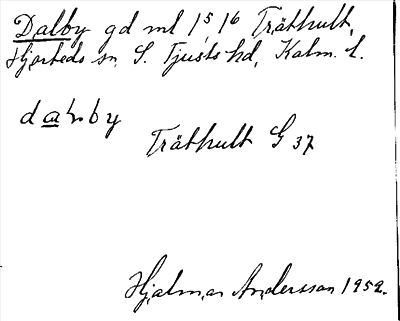 Dalby gd ml 1⁵, 1⁶ Träthult,
Hjorteds sn. S. Tjusts hd, Kalm. l.
Träthult G 37
Hjalmar Andersson 1952.